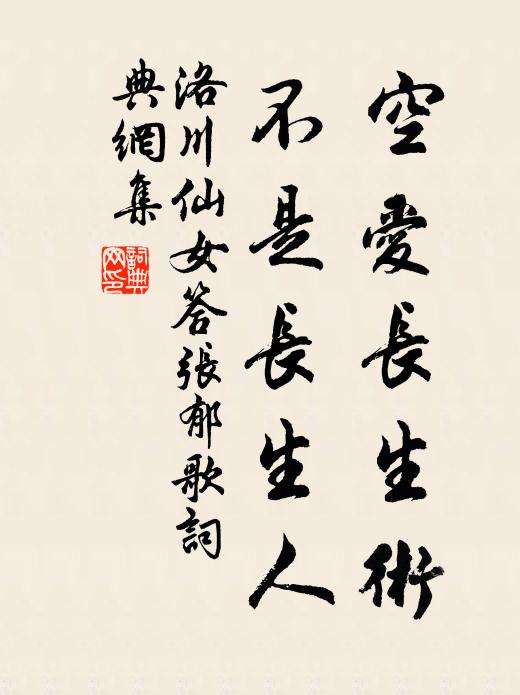 空愛長生術
不是長生人
洛川仙女答張郁歌詞
典網集
詞典網印